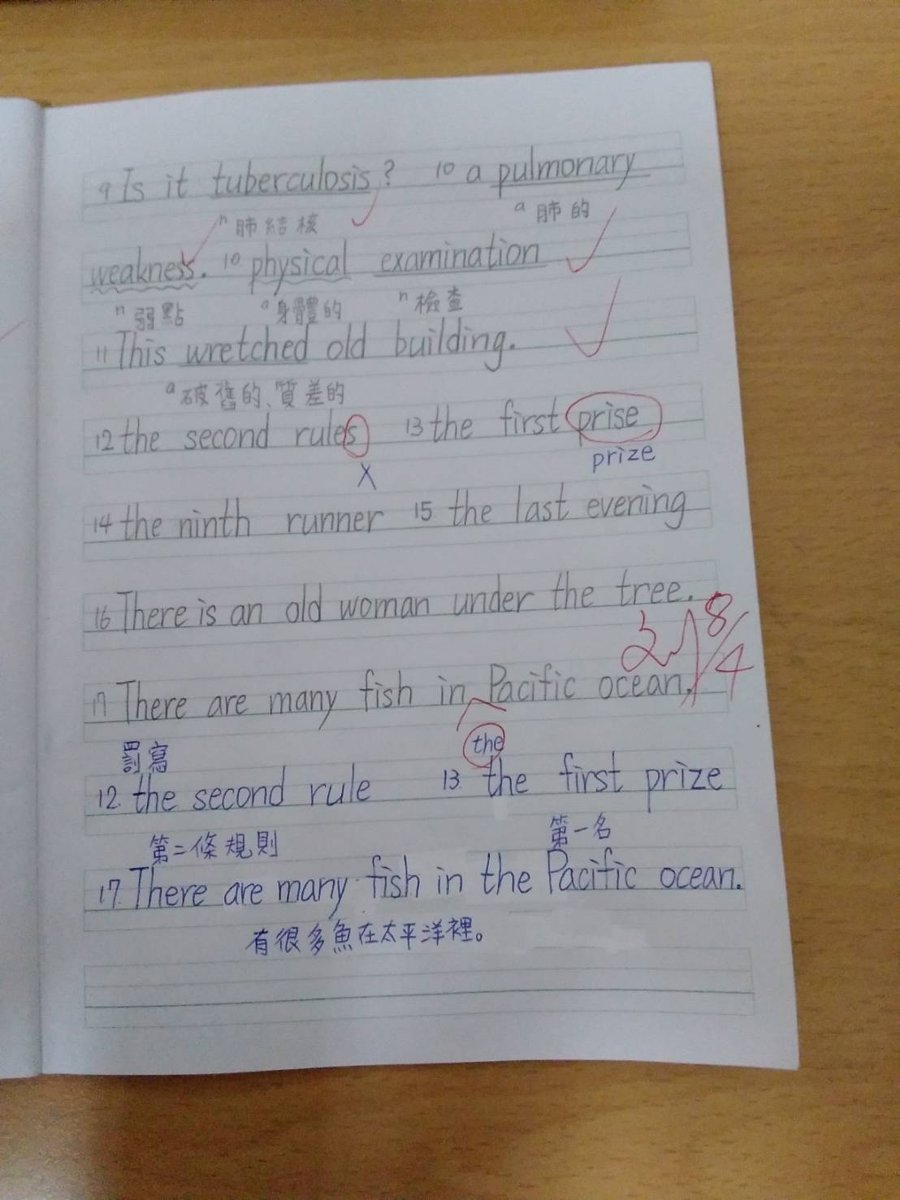 9 Is it tuberculosis? 10 a pulmonary
n 肺結核 a 肺的
weakness. 10 physical examination
n 弱點 a 身體的 n 檢查
11 This wretched old building.
a 破舊的、質差的
12 the second rules 13 the first prise
X prize
14 the ninth runner 15 the last evening
16 There is an old woman under the tree.
8/4
17 There are many fish in Pacific ocean.
罰寫 the
12. the second rule 13. the first prize
第二條規則 第一名
17. There are many fish in the Pacific ocean.
有很多魚在太平洋裡。